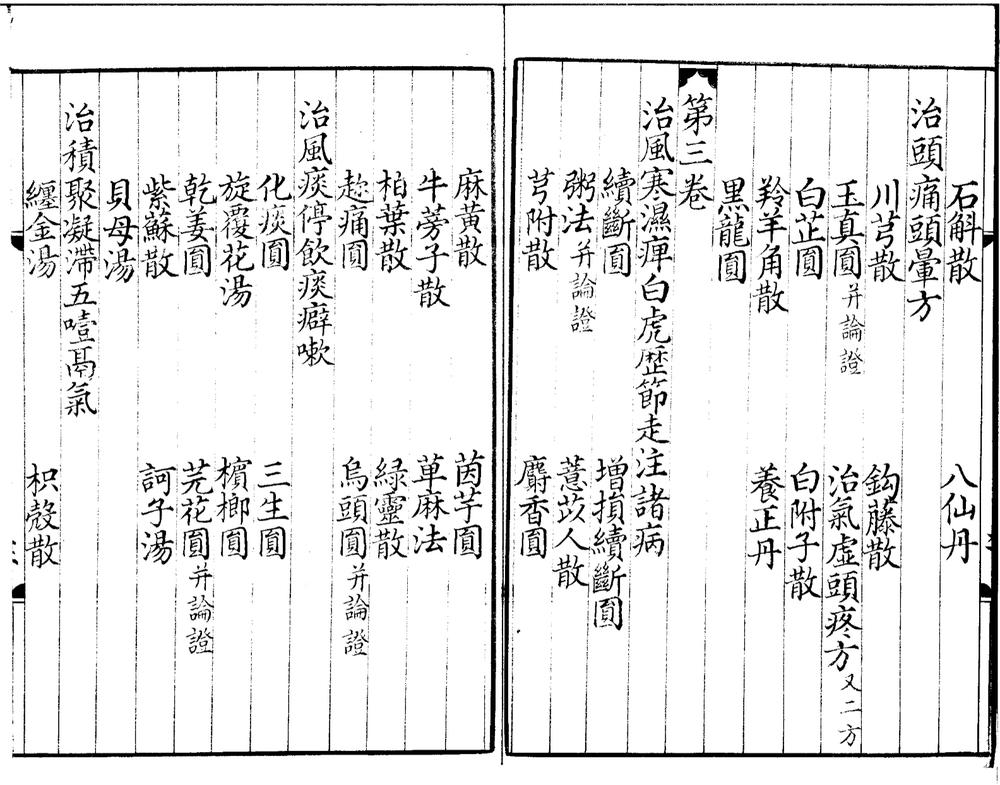 石斛散　八仙丹
治頭痛頭暈方
川芎散　鈎藤散
玉真圎并論證　治氣虛頭疼方又二方
白芷圎　白附子散
羚羊角散　養正丹
黑龍圎
第三卷
治風寒濕痺白虎歷節走注諸病
續斷圎　增損續斷圎
粥法并論證　薏苡人散
芎附散　麝香圎
麻黃散　茵芋圎
牛蒡子散　萆麻法
柏葉散　綠靈散
趂痛圎　烏頭圎并論證
治風痰停飲痰癖嗽
化痰圎　三生圎
旋覆花湯　檳榔圎
乾姜圎　芫花圎并論證
紫蘇散　訶子湯
貝母湯
治積聚凝滯五噎鬲氣
纏金湯　枳殼散